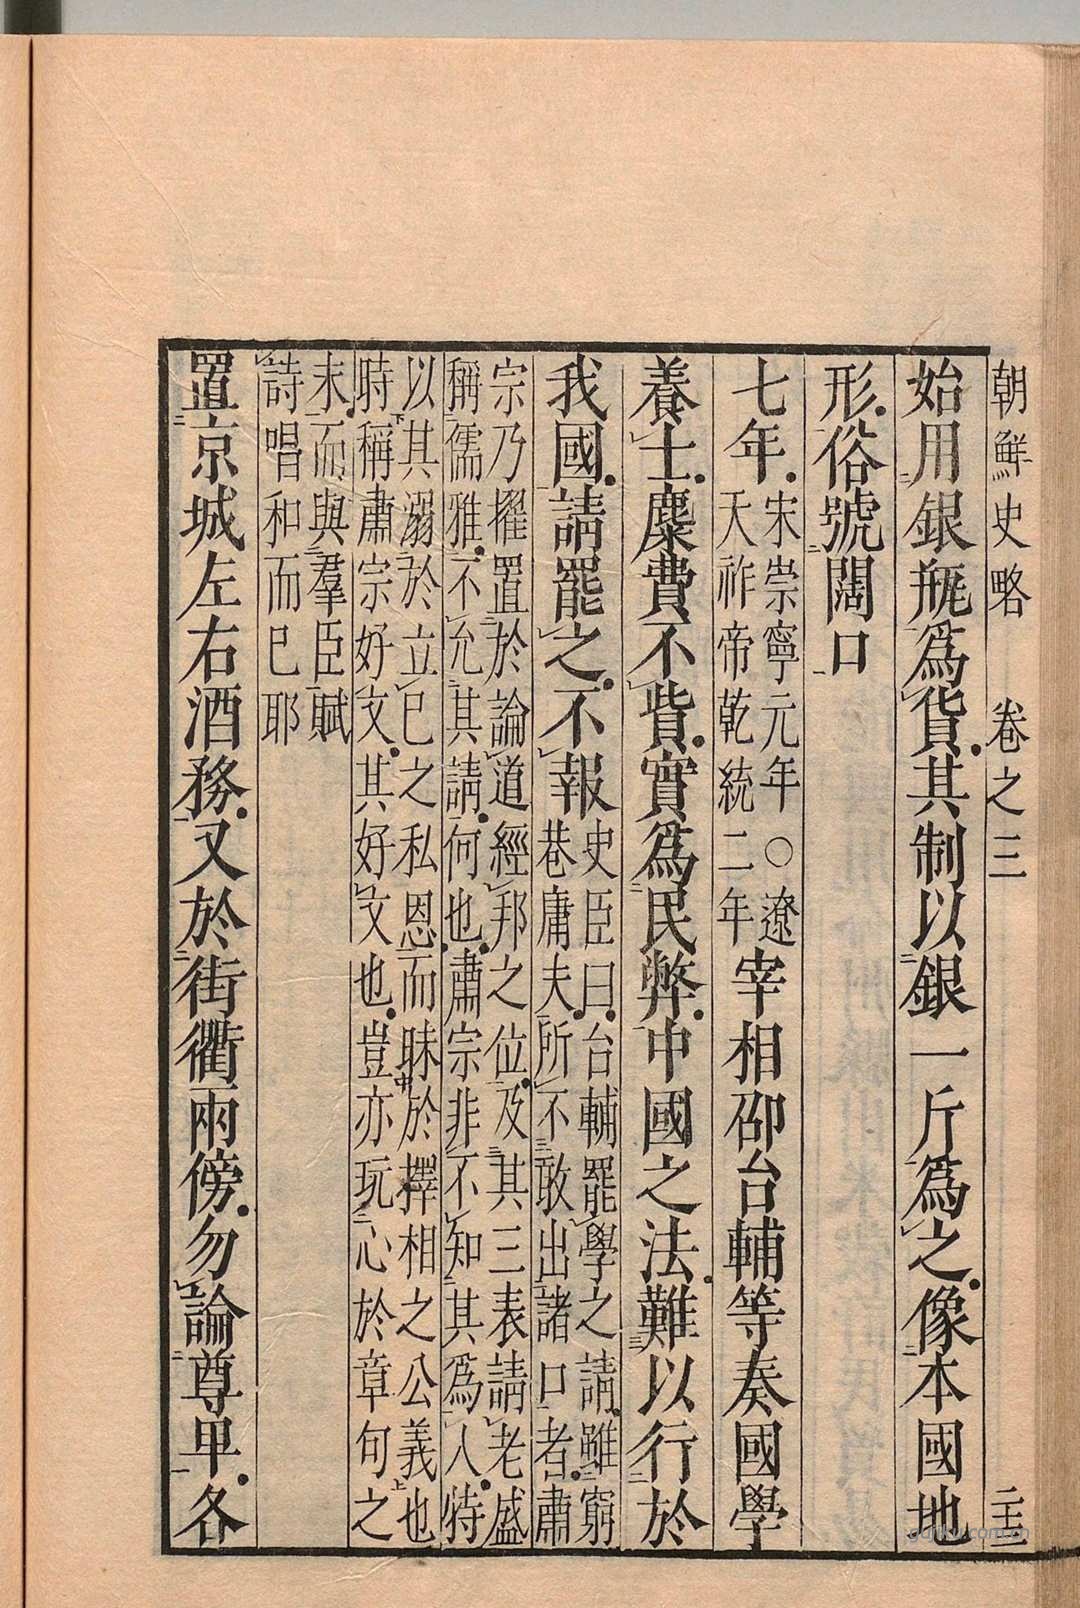 朝鮮史略　卷之三　二十三
始用銀瓶爲貨其制以銀一斤爲之像本國地
形俗號闊口
七年宋崇寧元年○遼天祚帝乾統二年宰相邵台輔等奏國學
養士糜費不貲實爲民弊中國之法難以行於
我國請罷之不報史臣曰台輔罷學之請雖窮巷庸夫所不敢出諸口者肅
宗乃擢置於論道經邦之位及其三表請老盛
稱儒雅不允其請何也肅宗非不知其爲人特
以其溺於立已之私恩而昧於擇相之公義也
時稱肅宗好文其好文也豈亦玩心於章句之
末而與羣臣賦
詩唱和而已耶
置京城左右酒務又於街衢兩傍勿論尊卑各